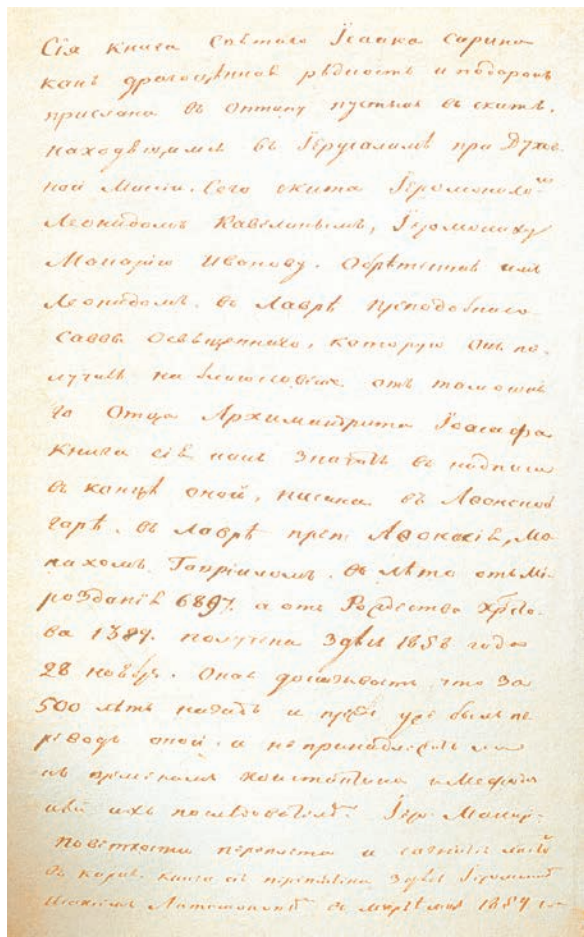 Сія книга Святаго Ісаака Сирина
какъ драгоцѣнная рѣдкость и подарокъ
прислана въ Оптину пустынь въ скитъ,
находящимся въ Іерусалимѣ при Духов
ной Миссіи. Сего скита Іеромонахомъ
Леонидомъ Кавелинымъ, Іеромонаху
Макарію Иванову. Обрѣтена имъ
Леонидомъ въ Лаврѣ преподобнаго
Саввы Освященнаго, которую онъ по
лучилъ на благословеніе отъ тамошня
го Отца Архимандрита Іоасафа
Книга сія какъ значитъ въ надписи
въ концѣ оной, писана въ Аѳонской
горѣ въ Лаврѣ преп: Аѳонасія, Мо
нахомъ Гавріиломъ. въ лѣто отъ Мі
розданія 6897. а отъ Рождества Христо
ва 1389. получена здѣсь 1858 года
28 ноября. Оная доказываетъ что за
500 лѣтъ назадъ и прежде уже былъ пе
реводъ оной. и не принадлежитъ ли
къ временамъ Константина и Меѳодія
или ихъ послѣдователей. Іер. Макар.
переплета и
въ книга сія переплетена здѣсь Іеромонахъ
въ мартѣ 1859